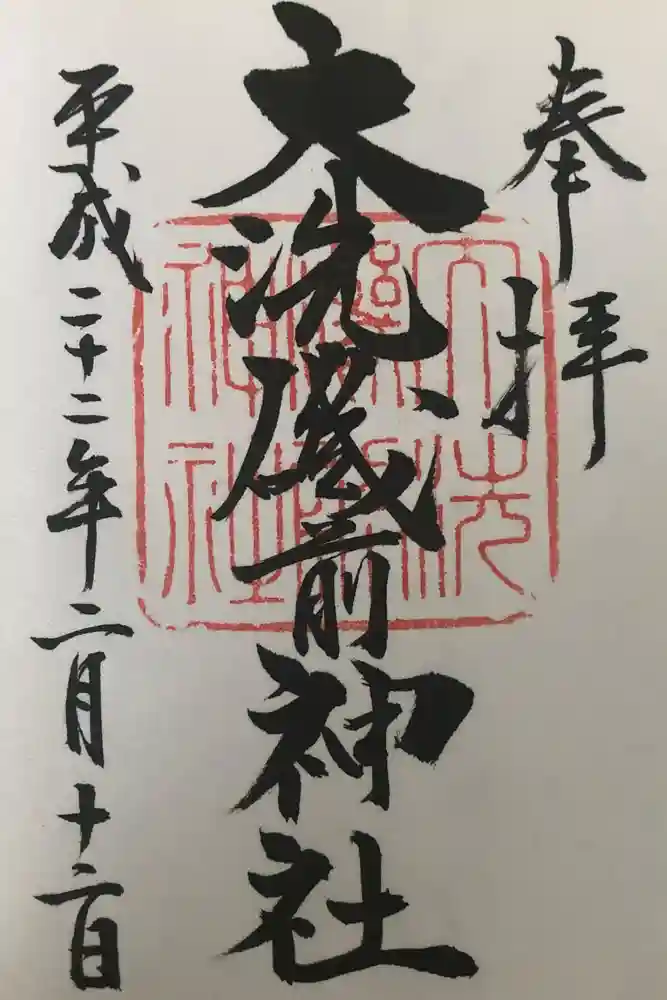 奉拝
大洗磯前神社
平成二十二年二月十二日
大洗
神社